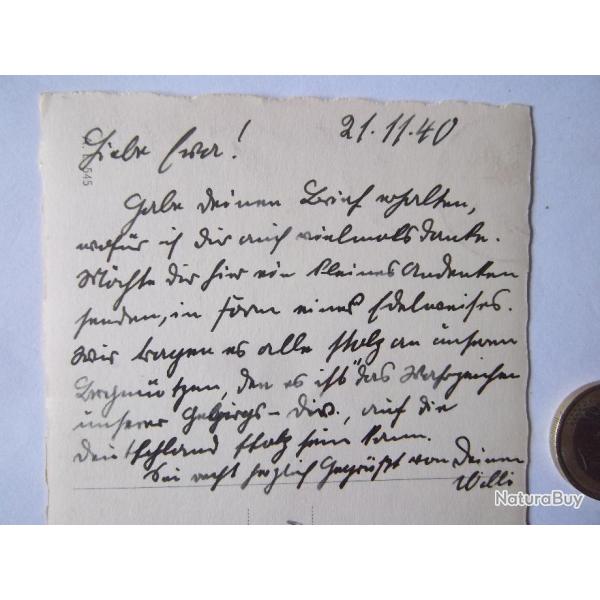 21.11.40
Liebe Eva!
Habe deinen Brief erhalten,
wofür ich dir auch vielmals danke.
Möchte dir hier ein kleines Andenken
senden, in Form eines Edelweises.
Wir tragen es alle stolz an unseren
Bergmützen, den es ist "das Wahrzeichen
unserer Gebirgs-Div., auf die
Deutschland stolz sein kann.
Sei recht herzlich Gegrüßt von Deinem
Willi
545
NaturaBuy